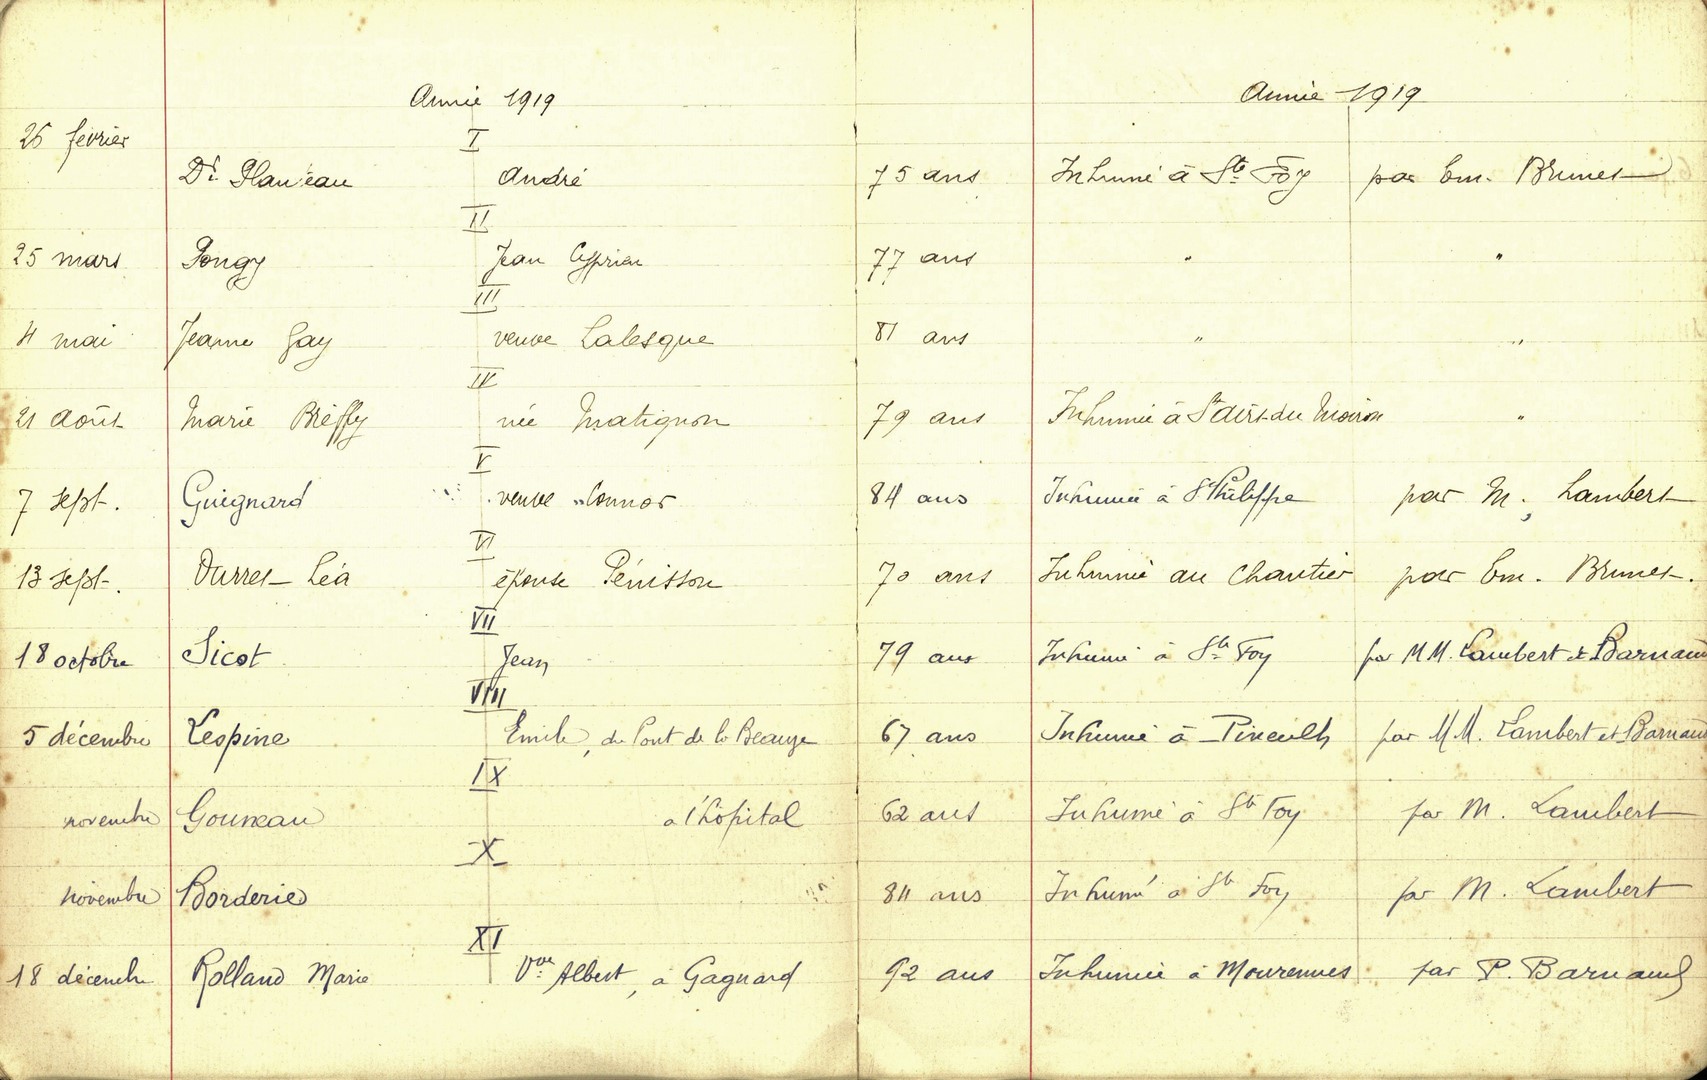 Année 1919 Année 1919
26 février I
Dr. Planteau André 75 ans Inhumé à Ste Foy par Em. Brunet
II
25 mars Pongy Jean Cyprien 77 ans " "
III
4 mai Jeanne Gay veuve Lalesque 81 ans " "
IV
21 août Marie Bréffy née Matignon 79 ans Inhumée à du "
V
7 sept. Guignard veuve Connor 84 ans Inhumée à St Philippe par M. Lambert
VI
13 sept. Durret Léa épouse Pénisson 70 ans Inhumée au Chantier par Em. Brunet.
VII
18 octobre Sicot Jean 79 ans Inhumé à Ste Foy par MM. Lambert et Barnaud
VIII
5 décembre Lespine Emile, du Pont de la Beauze 67 ans Inhumé à Pineuilh par MM. Lambert et Barnaud
IX
novembre Gouneau à l'hôpital 62 ans Inhumé à Ste Foy par M. Lambert
X
novembre Borderie 84 ans Inhumé à Ste Foy par M. Lambert
XI
18 décembre Rolland Marie Vve Albert, à Gagnard 92 ans Inhumée à Mourennes par P. Barnaud